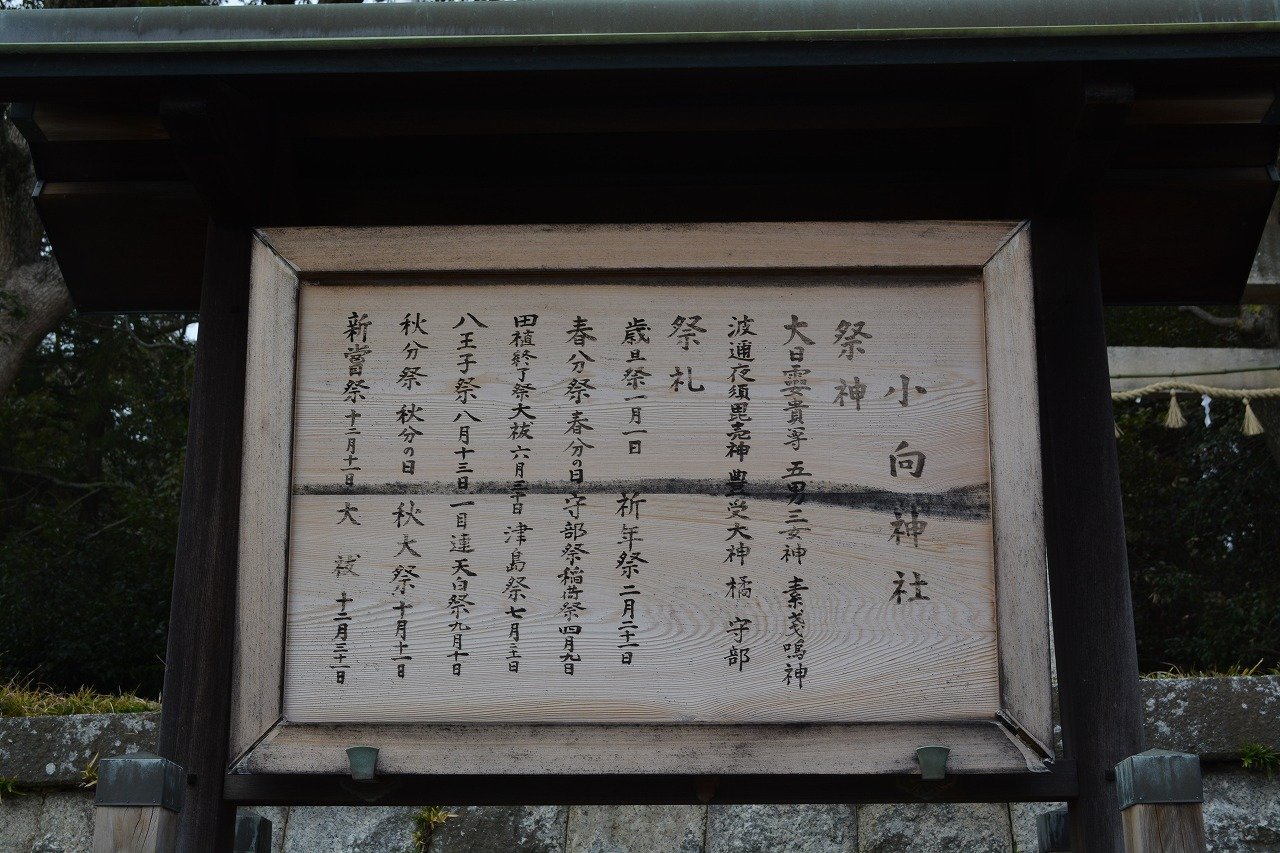 小向神社
祭神
大日霊貴尊 五男三女神 素戔嗚神
波邇夜須毘売神 豊受大神 橘 守部
祭札
歳旦祭一月一日 祈年祭二月二十一日
春分祭 春分の日 守部祭稲荷祭四月九日
田植終了祭大祓六月三十日 津島祭七月三日
八王子祭八月十三日 一目連天白祭九月十日
秋分祭 秋分の日 秋大祭十月十一日
新嘗祭十二月十一日 大祓十二月三十一日